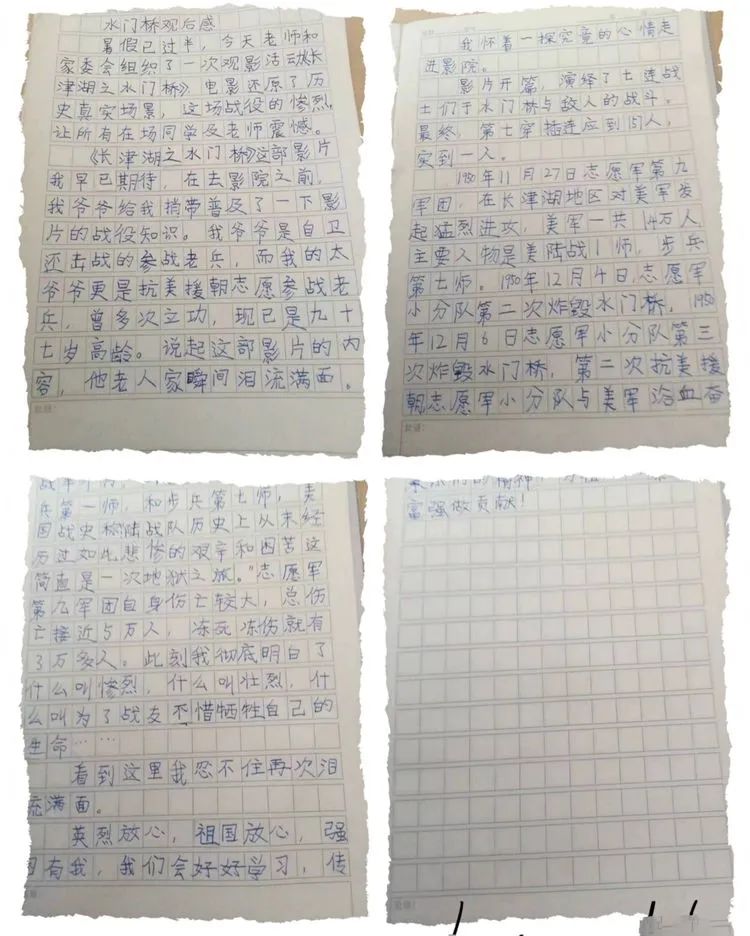 水门桥观后感
暑假已过半，今天老师和
家委会组织了一次观影活动《长
津湖之水门桥》电影还原了历
史真实场景，这场战役的惨烈，
让所有在场同学及老师震憾。
《长津湖之水门桥》这部影片
我早已期待，在去影院之前，
我爷爷给我捎带普及了一下影
片的战役知识。我爷爷是自卫
还击战的参战老兵，而我的太
爷爷更是抗美援朝志愿参战老
兵，曾多次立功，现已是九十
七岁高龄。说起这部影片的内
容，他老人家瞬间泪流满面。
批语：
我怀着一探究竟的心情走
进影院。
影片开篇，演绎了七连战
士们于水门桥与敌人的战斗。
最终，第七穿插连应到157人，
实到一人。
1950年11月27日志愿军第九
军团，在长津湖地区对美军发
起猛烈进攻，美军一共14万人
主要人物是美陆战1师，步兵
第七师。1950年12月4日志愿军
小分队第二次炸毁水门桥，1950
年12月6日志愿军小分队第三
次炸毁水门桥，第二次抗美援
朝志愿军小分队与美军浴血奋
批语：
兵第一师，和步兵第七师，美
国战史称陆战队历史上以未经
历过如此悲惨的艰辛和困苦这
简直是一次地狱之旅。"志愿军
第九军团自身伤亡较大，总伤
亡接近5万人，冻死冻伤就有
3万多人。此刻我彻底明白了
什么叫惨烈，什么叫壮烈，什
么叫为了战友不惜牺牲自己的
生命……
看到这里我忍不住再次泪
流满面。
英烈放心，祖国放心，强
国有我，我们会好好学习，传
富强做贡献！
批语：